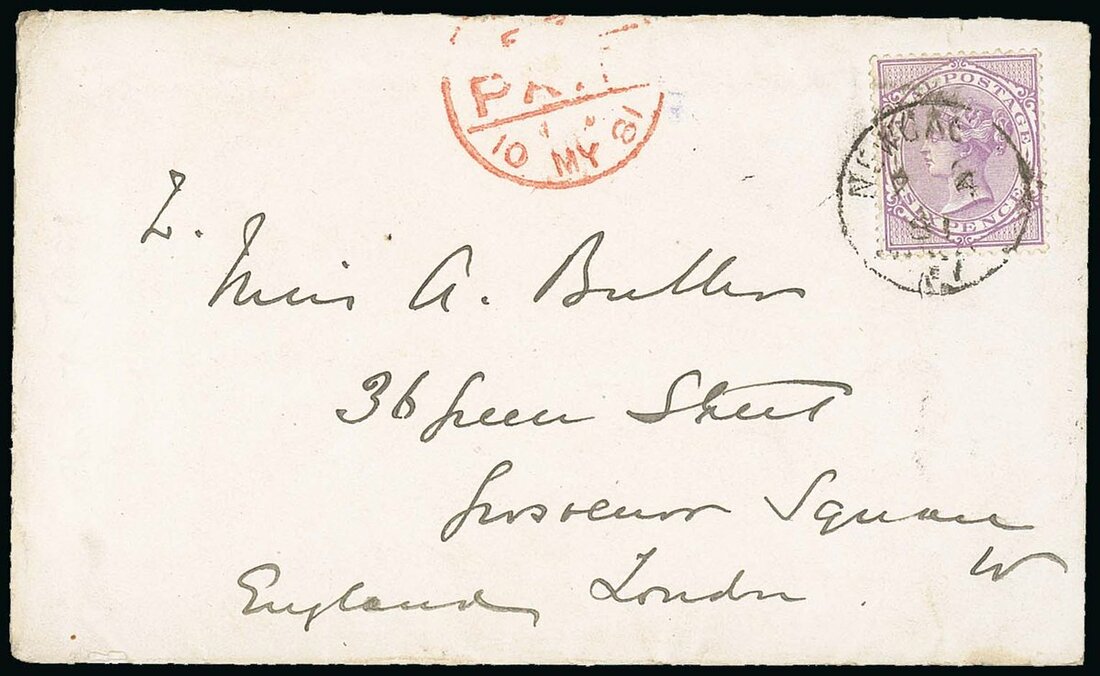 PAI
10 MY 81
POSTAGE
NEWCAS
SIXPENCE
81
Z.
Miss A. Butler
36 Green Street
Grosvenor Square
W
England London.